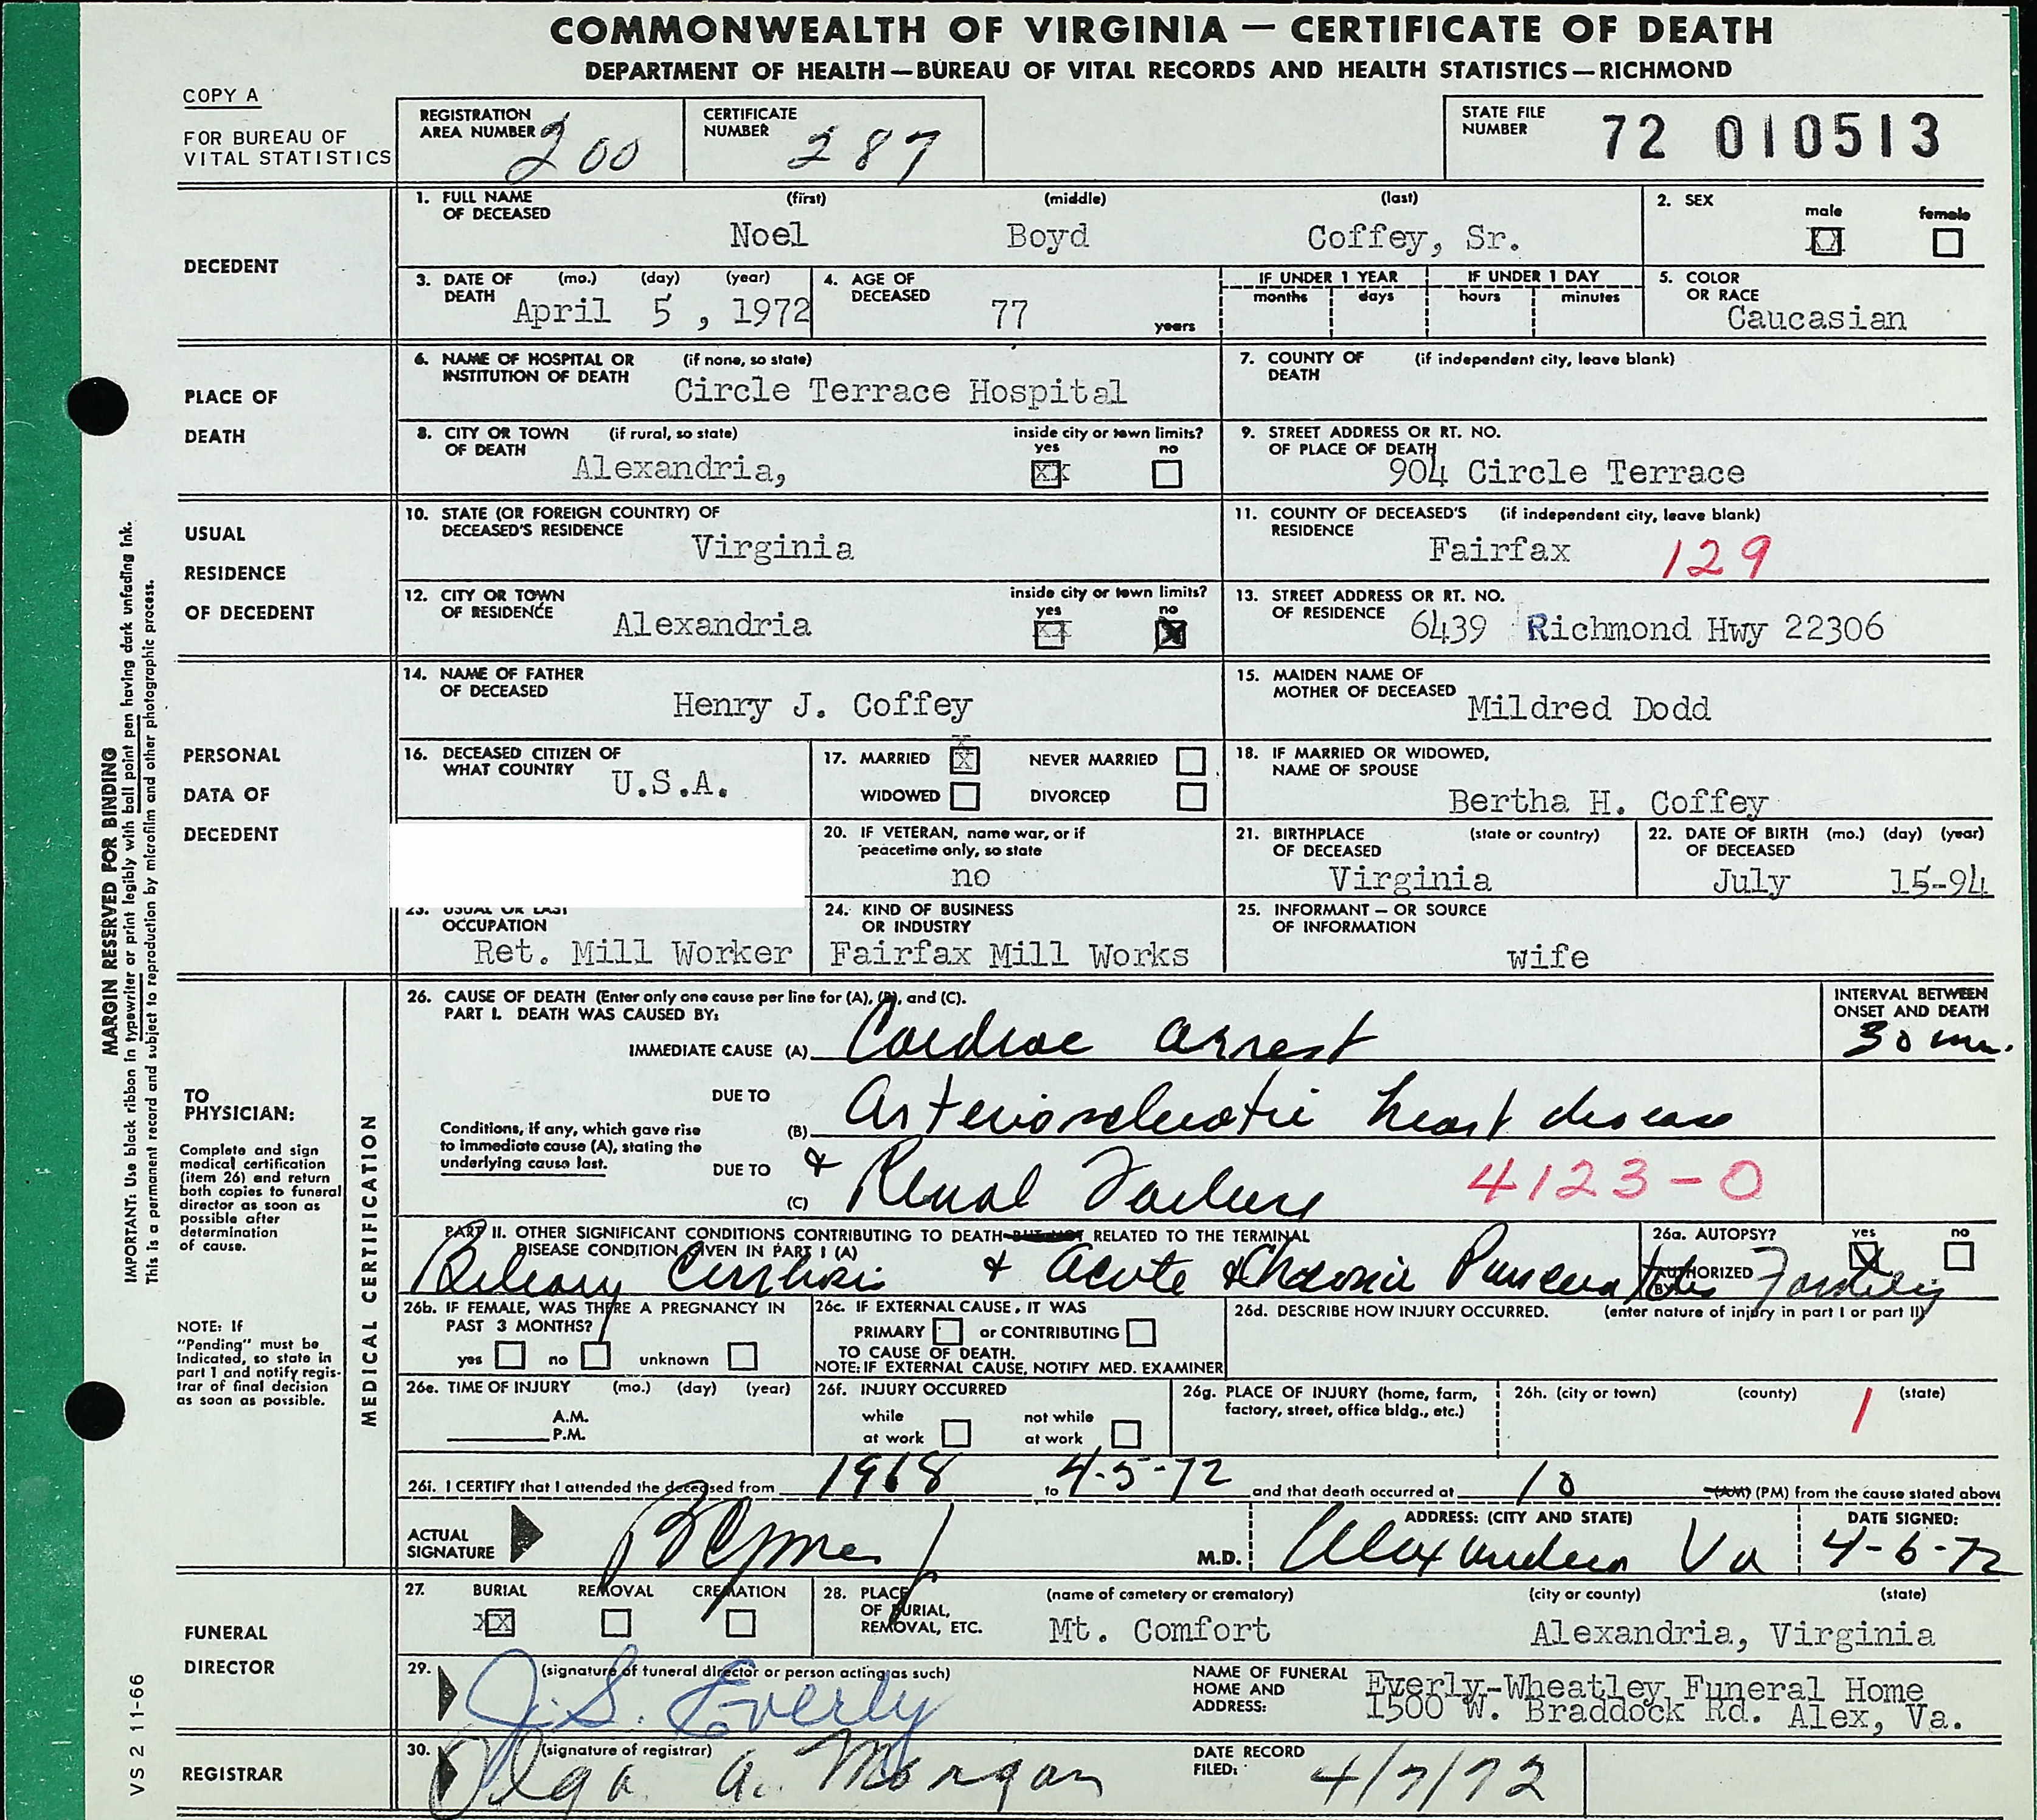 COMMONWEALTH OF VIRGINIA — CERTIFICATE OF DEATH
DEPARTMENT OF HEALTH—BUREAU OF VITAL RECORDS AND HEALTH STATISTICS—RICHMOND
COPY A
FOR BUREAU OF
VITAL STATISTICS
REGISTRATION
AREA NUMBER 200
CERTIFICATE
NUMBER 287
STATE FILE
NUMBER 72 010513
DECEDENT
1. FULL NAME (first) (middle) (last)
OF DECEASED
Noel Boyd Coffey, Sr.
2. SEX male female
XX
3. DATE OF (mo.) (day) (year)
DEATH April 5 , 1972
4. AGE OF
DECEASED 77 years
IF UNDER 1 YEAR IF UNDER 1 DAY
months days hours minutes
5. COLOR
OR RACE
Caucasian
PLACE OF
DEATH
6. NAME OF HOSPITAL OR (if none, so state)
INSTITUTION OF DEATH Circle Terrace Hospital
7. COUNTY OF (if independent city, leave blank)
DEATH
8. CITY OR TOWN (if rural, so state) inside city or town limits?
OF DEATH yes no
Alexandria, XX
9. STREET ADDRESS OR RT. NO.
OF PLACE OF DEATH
904 Circle Terrace
USUAL
RESIDENCE
OF DECEDENT
10. STATE (OR FOREIGN COUNTRY) OF
DECEASED'S RESIDENCE Virginia
11. COUNTY OF DECEASED'S (if independent city, leave blank)
RESIDENCE Fairfax 129
12. CITY OR TOWN inside city or town limits?
OF RESIDENCE yes no
Alexandria XX X
13. STREET ADDRESS OR RT. NO.
OF RESIDENCE 6439 Richmond Hwy 22306
PERSONAL
DATA OF
DECEDENT
14. NAME OF FATHER
OF DECEASED Henry J. Coffey
15. MAIDEN NAME OF
MOTHER OF DECEASED Mildred Dodd
16. DECEASED CITIZEN OF
WHAT COUNTRY U.S.A.
17. MARRIED X NEVER MARRIED
WIDOWED DIVORCED
18. IF MARRIED OR WIDOWED,
NAME OF SPOUSE
Bertha H. Coffey
20. IF VETERAN, name war, or if
peacetime only, so state
no
21. BIRTHPLACE (state or country)
OF DECEASED
Virginia
22. DATE OF BIRTH (mo.) (day) (year)
OF DECEASED
July 15-94
23. USUAL OR LAST
OCCUPATION
Ret. Mill Worker
24. KIND OF BUSINESS
OR INDUSTRY
Fairfax Mill Works
25. INFORMANT — OR SOURCE
OF INFORMATION
wife
MARGIN RESERVED FOR BINDING
IMPORTANT: Use black ribbon in typewriter or print legibly with ball point pen having dark unfading ink.
This is a permanent record and subject to reproduction by microfilm and other photographic process.
TO
PHYSICIAN:
Complete and sign
medical certification
(item 26) and return
both copies to funeral
director as soon as
possible after
determination
of cause.
NOTE: If
"Pending" must be
indicated, so state in
part 1 and notify regis-
trar of final decision
as soon as possible.
MEDICAL CERTIFICATION
26. CAUSE OF DEATH (Enter only one cause per line for (A), (B), and (C).
PART I. DEATH WAS CAUSED BY:
INTERVAL BETWEEN
ONSET AND DEATH
IMMEDIATE CAUSE (A) Cardiac arrest 30 min.
DUE TO
Conditions, if any, which gave rise
to immediate cause (A), stating the
underlying cause last.
(B) Arteriosclerotic heart disease
DUE TO &
(C) Renal Failure 4123-0
PART II. OTHER SIGNIFICANT CONDITIONS CONTRIBUTING TO DEATH BUT NOT RELATED TO THE TERMINAL
DISEASE CONDITION GIVEN IN PART I (A)
Biliary Cirrhosis & Acute & Chronic Pancreatitis
26a. AUTOPSY? yes no
X
AUTHORIZED
BY Family
26b. IF FEMALE, WAS THERE A PREGNANCY IN
PAST 3 MONTHS?
yes no unknown
26c. IF EXTERNAL CAUSE, IT WAS
PRIMARY or CONTRIBUTING
TO CAUSE OF DEATH.
NOTE: IF EXTERNAL CAUSE, NOTIFY MED. EXAMINER
26d. DESCRIBE HOW INJURY OCCURRED. (enter nature of injury in part I or part II)
26e. TIME OF INJURY (mo.) (day) (year)
A.M.
P.M.
26f. INJURY OCCURRED
while not while
at work at work
26g. PLACE OF INJURY (home, farm,
factory, street, office bldg., etc.)
26h. (city or town) (county) (state)
1
26i. I CERTIFY that I attended the deceased from 1968 to 4-5-72 and that death occurred at 10 (AM) (PM) from the cause stated above
ACTUAL
SIGNATURE
M.D.
ADDRESS: (CITY AND STATE)
Alexandria Va
DATE SIGNED:
4-6-72
FUNERAL
DIRECTOR
27. BURIAL REMOVAL CREMATION
XX
28. PLACE (name of cemetery or crematory) (city or county) (state)
OF BURIAL,
REMOVAL, ETC. Mt. Comfort Alexandria, Virginia
29. (signature of funeral director or person acting as such)
J. S. Everly
NAME OF FUNERAL
HOME AND
ADDRESS:
Everly-Wheatley Funeral Home
1500 W. Braddock Rd. Alex, Va.
REGISTRAR
30. (signature of registrar)
Olga A. Morgan
DATE RECORD
FILED: 4/7/72
VS 2 11-66